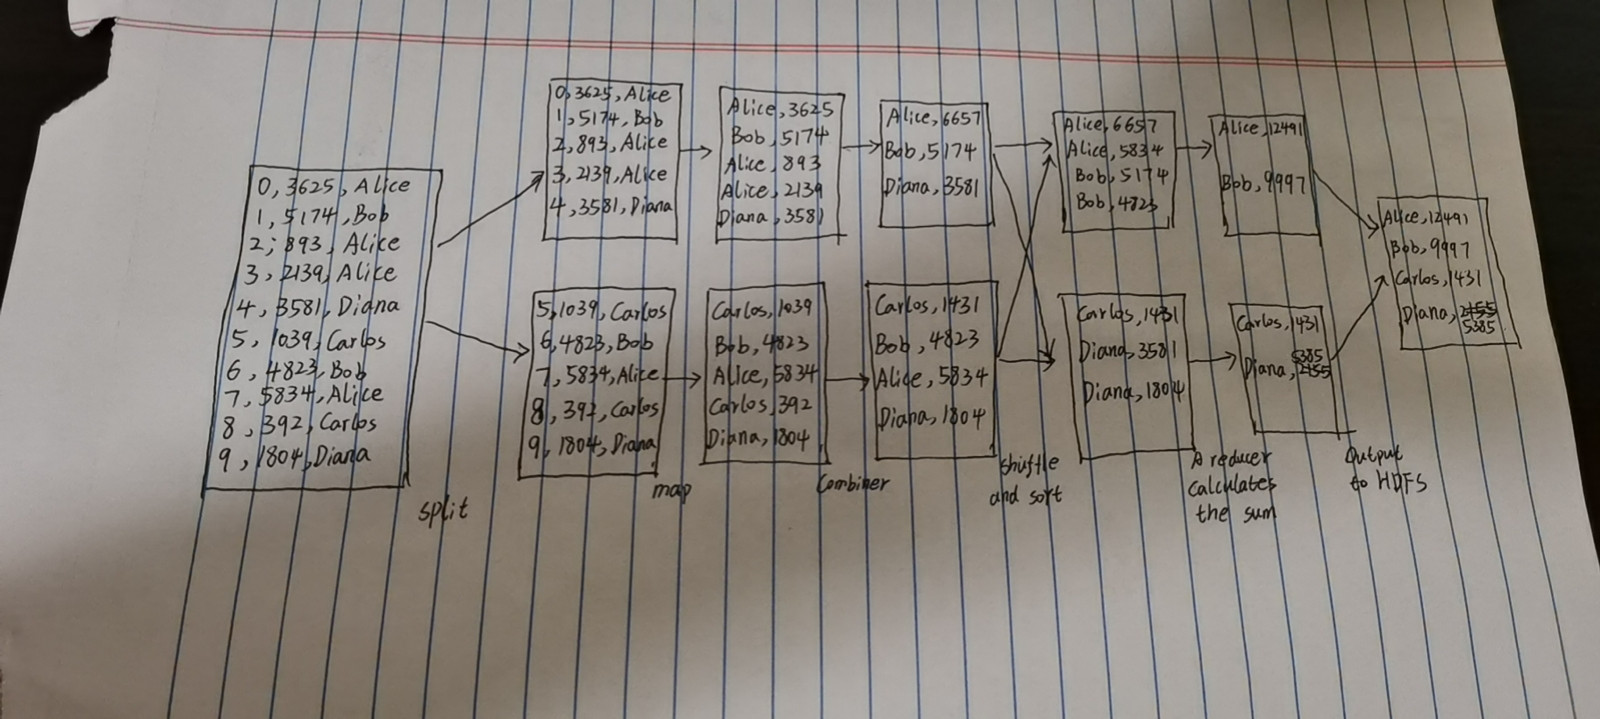 0, 3625, Alice
1, 5174, Bob
2, 893, Alice
3, 2139, Alice
4, 3581, Diana
5, 1039, Carlos
6, 4823, Bob
7, 5834, Alice
8, 392, Carlos
9, 1804, Diana
split
0, 3625, Alice
1, 5174, Bob
2, 893, Alice
3, 2139, Alice
4, 3581, Diana
5, 1039, Carlos
6, 4823, Bob
7, 5834, Alice
8, 392, Carlos
9, 1804, Diana
map
Alice, 3625
Bob, 5174
Alice, 893
Alice, 2139
Diana, 3581
Carlos, 1039
Bob, 4823
Alice, 5834
Carlos, 392
Diana, 1804
Combiner
Alice, 6657
Bob, 5174
Diana, 3581
Carlos, 1431
Bob, 4823
Alice, 5834
Diana, 1804
shuffle
and sort
Alice, 6657
Alice, 5834
Bob, 5174
Bob, 4823
Carlos, 1431
Diana, 3581
Diana, 1804
A reducer
calculates
the sum
Alice, 12491
Bob, 9997
Carlos, 1431
5385
Diana, 2455
Output
to HDFS
Alice, 12491
Bob, 9997
Carlos, 1431
Diana, 2455
5385